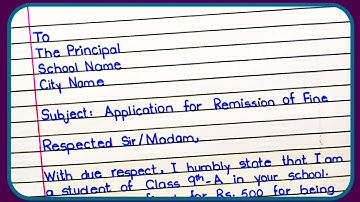 To
The Principal
School Name
City Name
Subject: Application for Remission of Fine
Respected Sir/Madam,
With due respect, I humbly state that I am
a student of Class 9th-A in your school.
for Rs. 500 for being